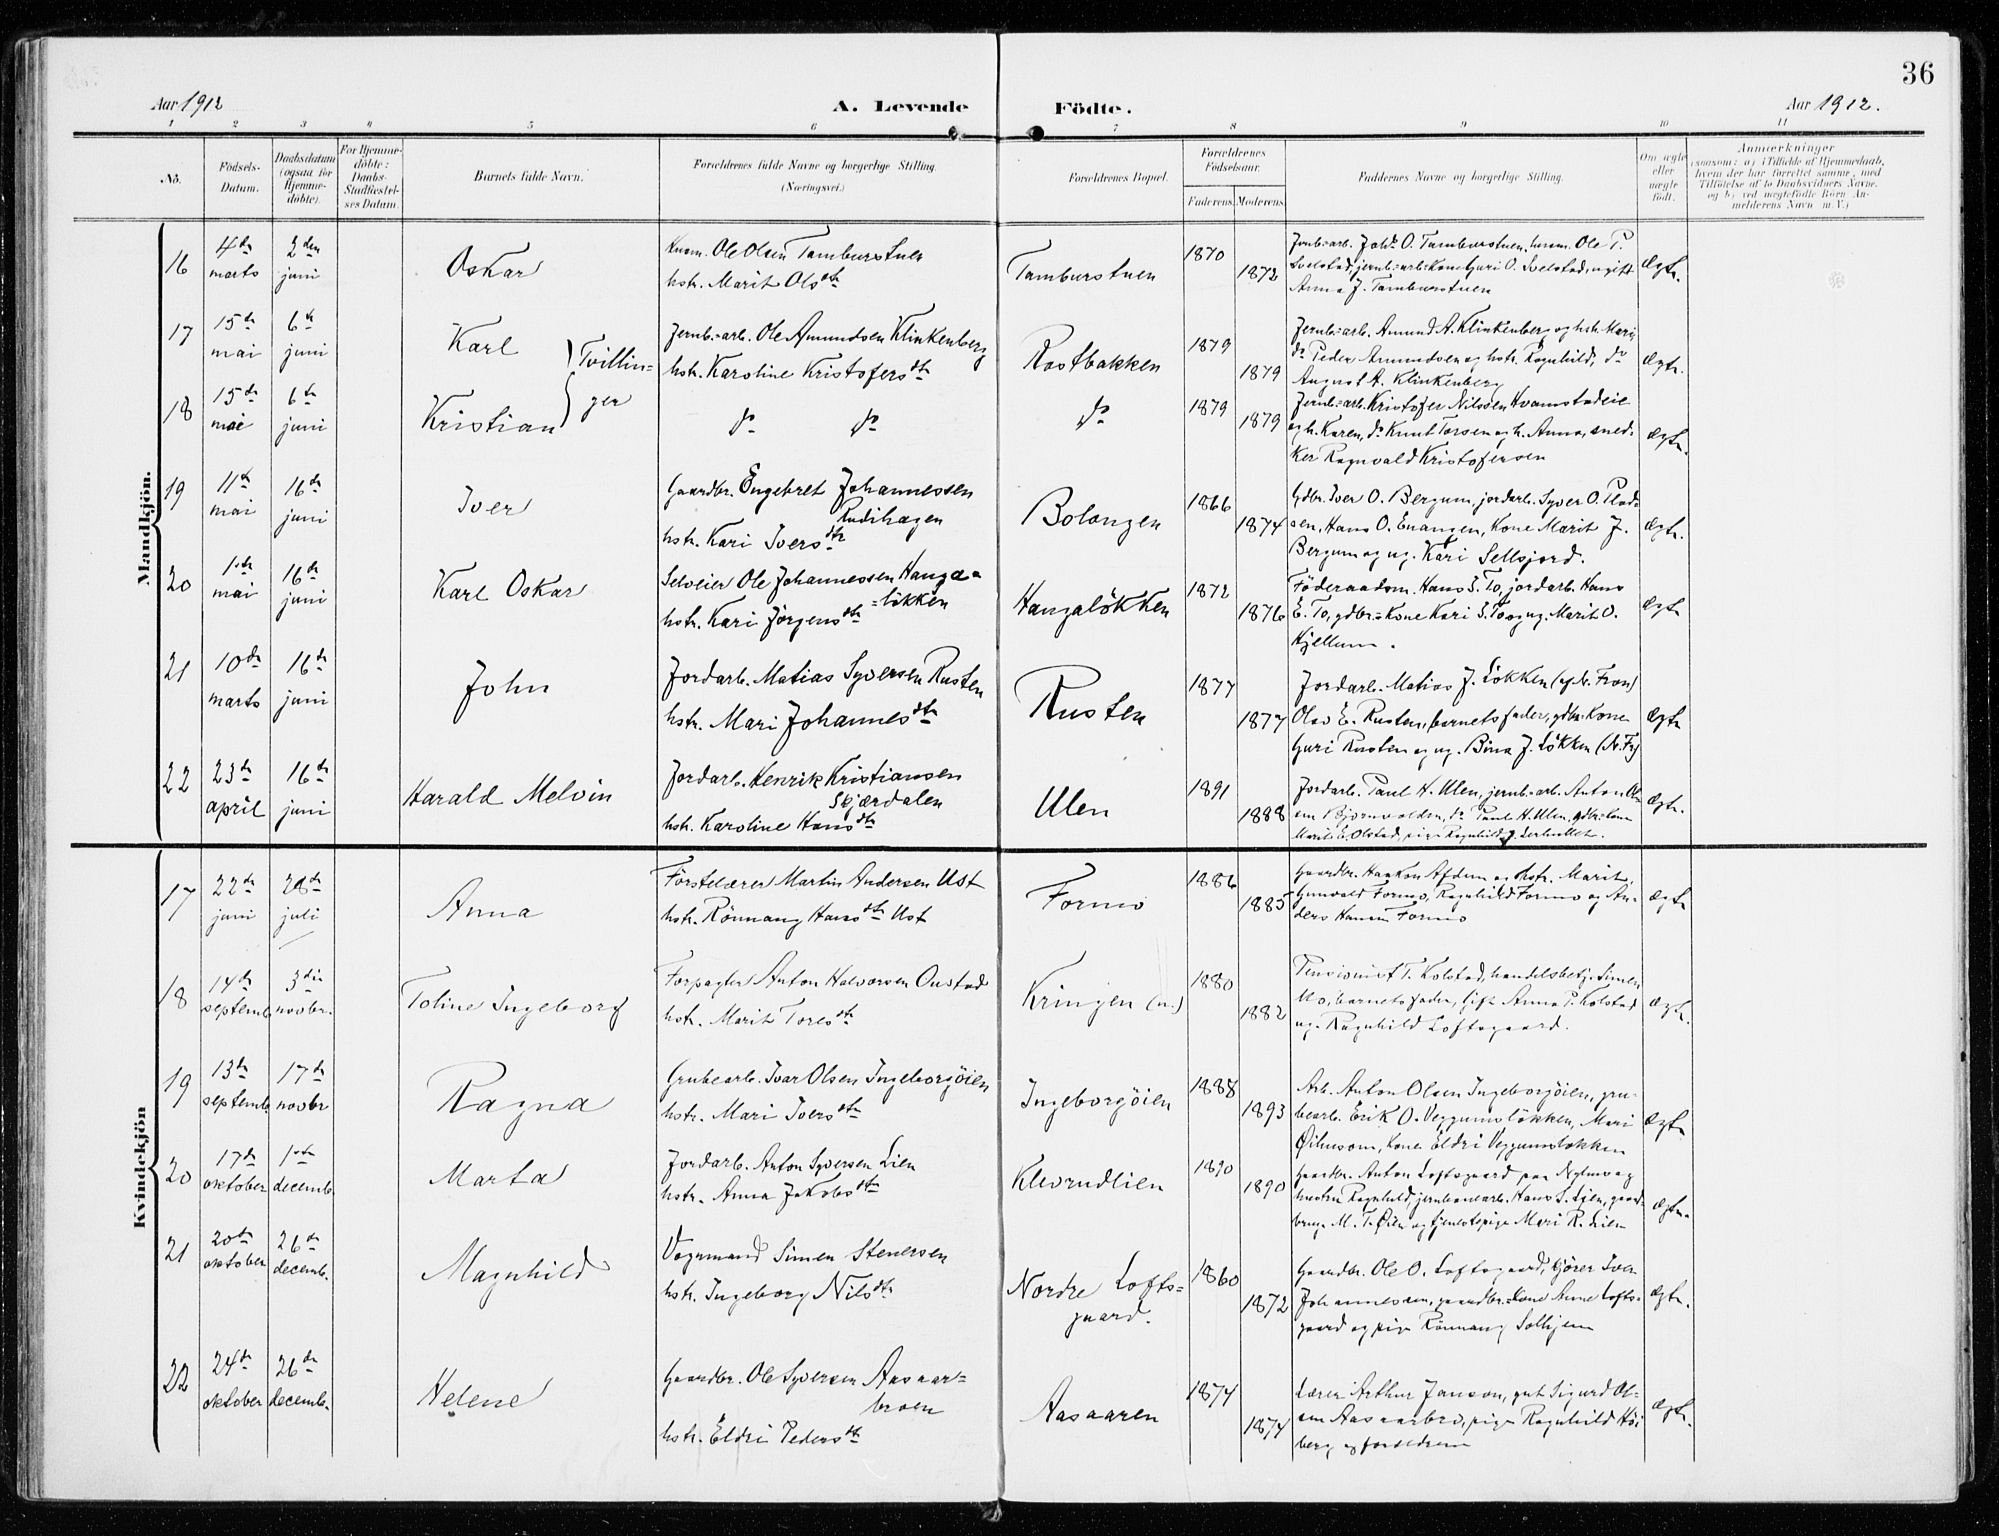 36
Aar 1912
A. Levende
Födte.
Aar 1912.
1 2 3 4 5 6 7 8 9 10 11
No.
Födsels-
Datum.
Daabsdatum
(ogsaa for
Hjemme-
döbte).
For Hjemme-
döbte:
Daabs-
Stadfæstel-
ses Datum.
Barnets fulde Navn.
Forældrenes fulde Navne og borgerlige Stilling.
(Næringsvei.)
Forældrenes Bopæl.
Forældrenes
Födselsaar.
Faderens. Moderens.
Faddernes Navne og borgerlige Stilling.
Om ægte
eller
uægte
födt.
Anmærkninger
(saasom: a) i Tilfælde af Hjemmedaab,
hvem der har forrettet samme, med
Tilföielse af to Daabsvidners Navne.
og b) ved uægtefödte Börn An-
melderens Navn m. V.)
Mandkjön.
16
4de
marts
2den
juni
Oskar
Husm. Ole Olsen Tamburstuen
hstr. Marit Olsdtr
Tamburstuen
1870
1872
Jernb.arb. Johs O. Tamburstuen, husm. Ole P.
Svelstad, jernb.-arb.-Kone Guri O. Svelstad, ugift
Anna J. Tamburstuen
Ægte.
17
15de
mai
6te
juni
Karl
Tvillin-
ger
Jernb.-arb. Ole Amundsen Klinkenberg
hstr. Karoline Kristofersdtr
Rostbakken
1879
1879
Jernb.-arb. Amund A. Klinkenberg og hstr. Mari,
do Peder Amundsen og hstr. Ragnhild, do
August A. Klinkenberg
Ægte.
18
15de
mai
6te
juni
Kristian
do do
do
1879
1879
Jernb.-arb. Kristofer Nilssen Hvamstadeie
og h. Karen, do Knut Torsen og h. Anna, sned-
ker Ragnvald Kristofersen
Ægte.
19
11te
mai
16de
juni
Iver
Gaardbr. Engebret Johannessen
Rudihagen
hstr. Kari Iversdtr
Bolongen
1866
1874
Gdbr. Iver O. Bergum, jordarb. Syver O.
Hans O. Enangen, Kone Marit J.
Bergum og ug. Kari Sellsjord.
Ægte.
20
1ste
mai
16de
juni
Karl Oskar
Selveier Ole Johannessen Hanga-
lökken
hstr. Kari Jörgensdtr
Hangalökken
1872
1876
Föderaadsm. Hans E. To, jordarb. Hans
E. To, gdbr.-Kone Kari E. To og ug. Marit O.
Kjellum.
Ægte
21
10de
marts
16de
juni
John
Jordarb. Matias Syversen Rusten
hstr. Mari Johannesdtr
Rusten
1877
1877
Jordarb. Matias J. Lökken (af N. Fron)
Olav E. Rusten, barnets fader, gdbr.-Kone
Guri Rusten og ug. Bina J. Lökken (N. Fr.)
Ægte
22
23de
april
16de
juni
Harald Melvin
Jordarb. Henrik Kristiansen
Skjærdalen
hstr. Karoline Hansdtr
Ulen
1891
1888
Jordarb. Paul H. Ulen, jernb.-arb. Anton Ol-
sen Bjørnvolden, do Paul H. Ulen, gdbr.-Kone
Marit E. Olstad, pige Ragnhild J.
Ægte.
Kvindekjön
17
22de
juni
28de
juli
Anna
Förstelærer Martin Andersen Ust
hstr. Rönnaug Hansdtr Ust
Formo
1886
1885
Gaardbr. Haakon Afdem og hstr. Marit,
Gunvald Formo, Ragnhild Formo og An-
ders Hansen Formo
Ægte
18
14de
septemb.
3die
novbr.
Toline Ingeborg
Forpagter Anton Halvorsen Onstad
hstr. Marit Toresdtr
Kringen (n.)
1880
1882
Pensionist T. Kolstad, handelsbetj. Simen
Mo, barnets fader, gift Anna P. Kolstad
ug. Ragnhild Loftsgaard.
Ægte.
19
13de
septemb.
17de
novbr
Ragna
Grubearb. Ivar Olsen Ingeborgöien
hstr. Mari Iversdtr
Ingeborgöien
1888
1893
Arb. Anton Olsen Ingeborgöien, gru-
bearb. Erik O. Veggumslökken, Mari
Öihusom, Kone Eldri Veggumslökken
Ægte
20
17de
oktober
1ste
decemb.
Marta
Jordarb. Anton Syversen Lien
hstr. Anna Jakobsdtr
Klevrudlien
1890
1890
Gaardbr. Anton Loftsgaard paa
hustru Ragnhild, jernbanearb. Hans S. Lien, gaard-
brug. M. T. Öien og tjenestepige Mari R. Lien
Ægte.
21
20de
oktober
26de
decemb.
Magnhild
Vognmand Simen Stenersen
hstr. Ingeborg Nilsdtr
Nordre Lofts-
gaard.
1860
1872
Gaardbr. Ole O. Loftsgaard, kjörer Iver
Johannessen, gaardbr.-Kone Anne Lofts-
gaard og pige Rönnaug Solhjem
Ægte.
22
24de
oktober
26de
decemb.
Helene
Gaardbr. Ole Syversen Aasaar-
broen
hstr. Eldri Pedersdtr
Aasaaren
1874
1874
Lærer Arthur Janson, gut Sigurd Ol-
sen Aasaarbro, pige Ragnhild Höi
berg og forældrene
Ægte.